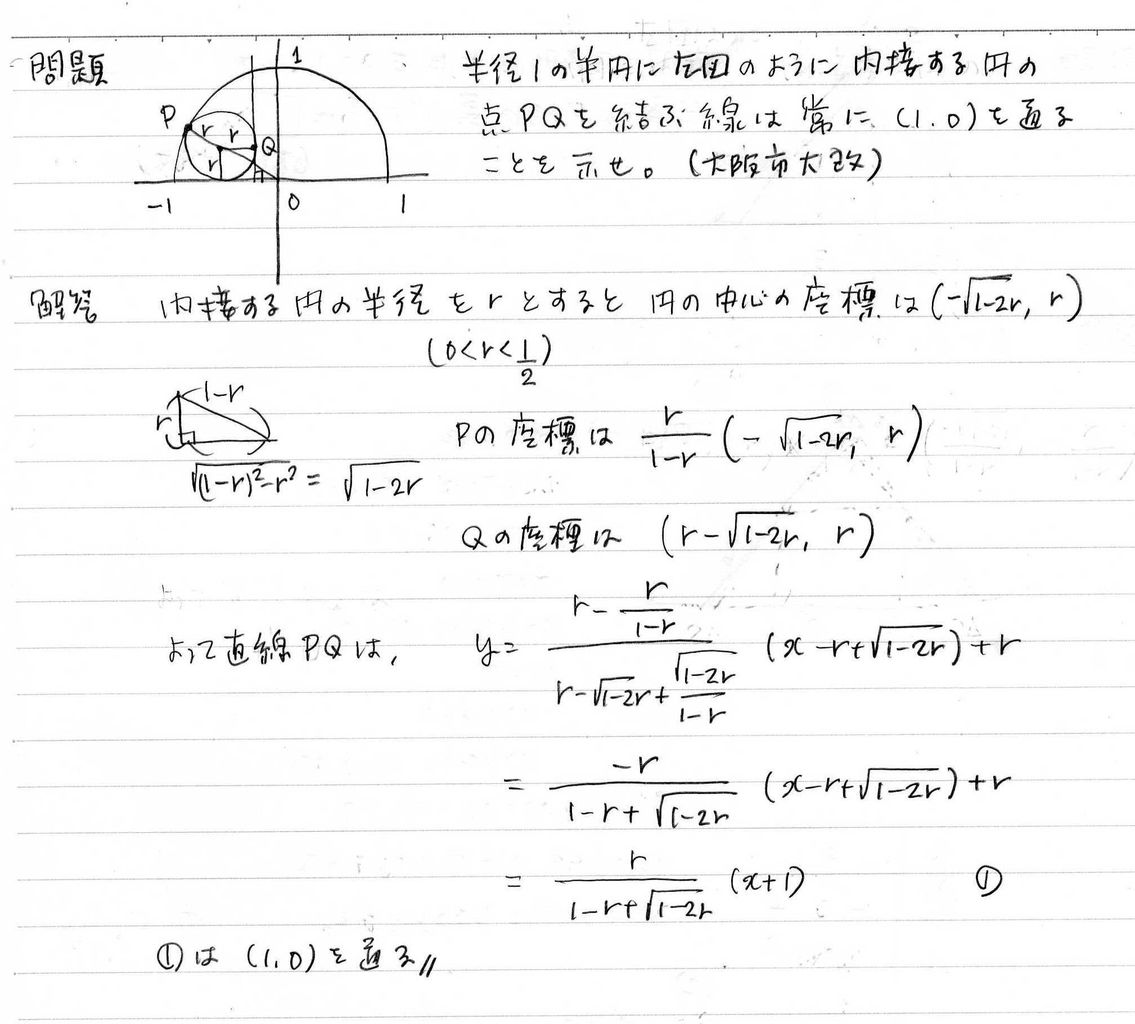 問題
1
P
r
r
Q
r
-1
0
1
半径1の半円に左図のように内接する円の
点PQを結ぶ線は常に(1.0)を通る
ことを示せ。(大阪市大改)
解答 内接する円の半径をrとすると円の中心の座標は(-√1-2r, r)
(0<r<1/2)
1-r
r
√(1-r)²-r² = √1-2r
Pの座標は r/1-r (-√1-2r, r)
Qの座標は (r-√1-2r, r)
よって直線PQは, y= (r - r/1-r)/(r-√1-2r + √1-2r/1-r) (x-r+√1-2r)+r
= -r/1-r+√1-2r (x-r+√1-2r)+r
= r/1-r+√1-2r (x+1) ①
①は (1,0)を通る〃